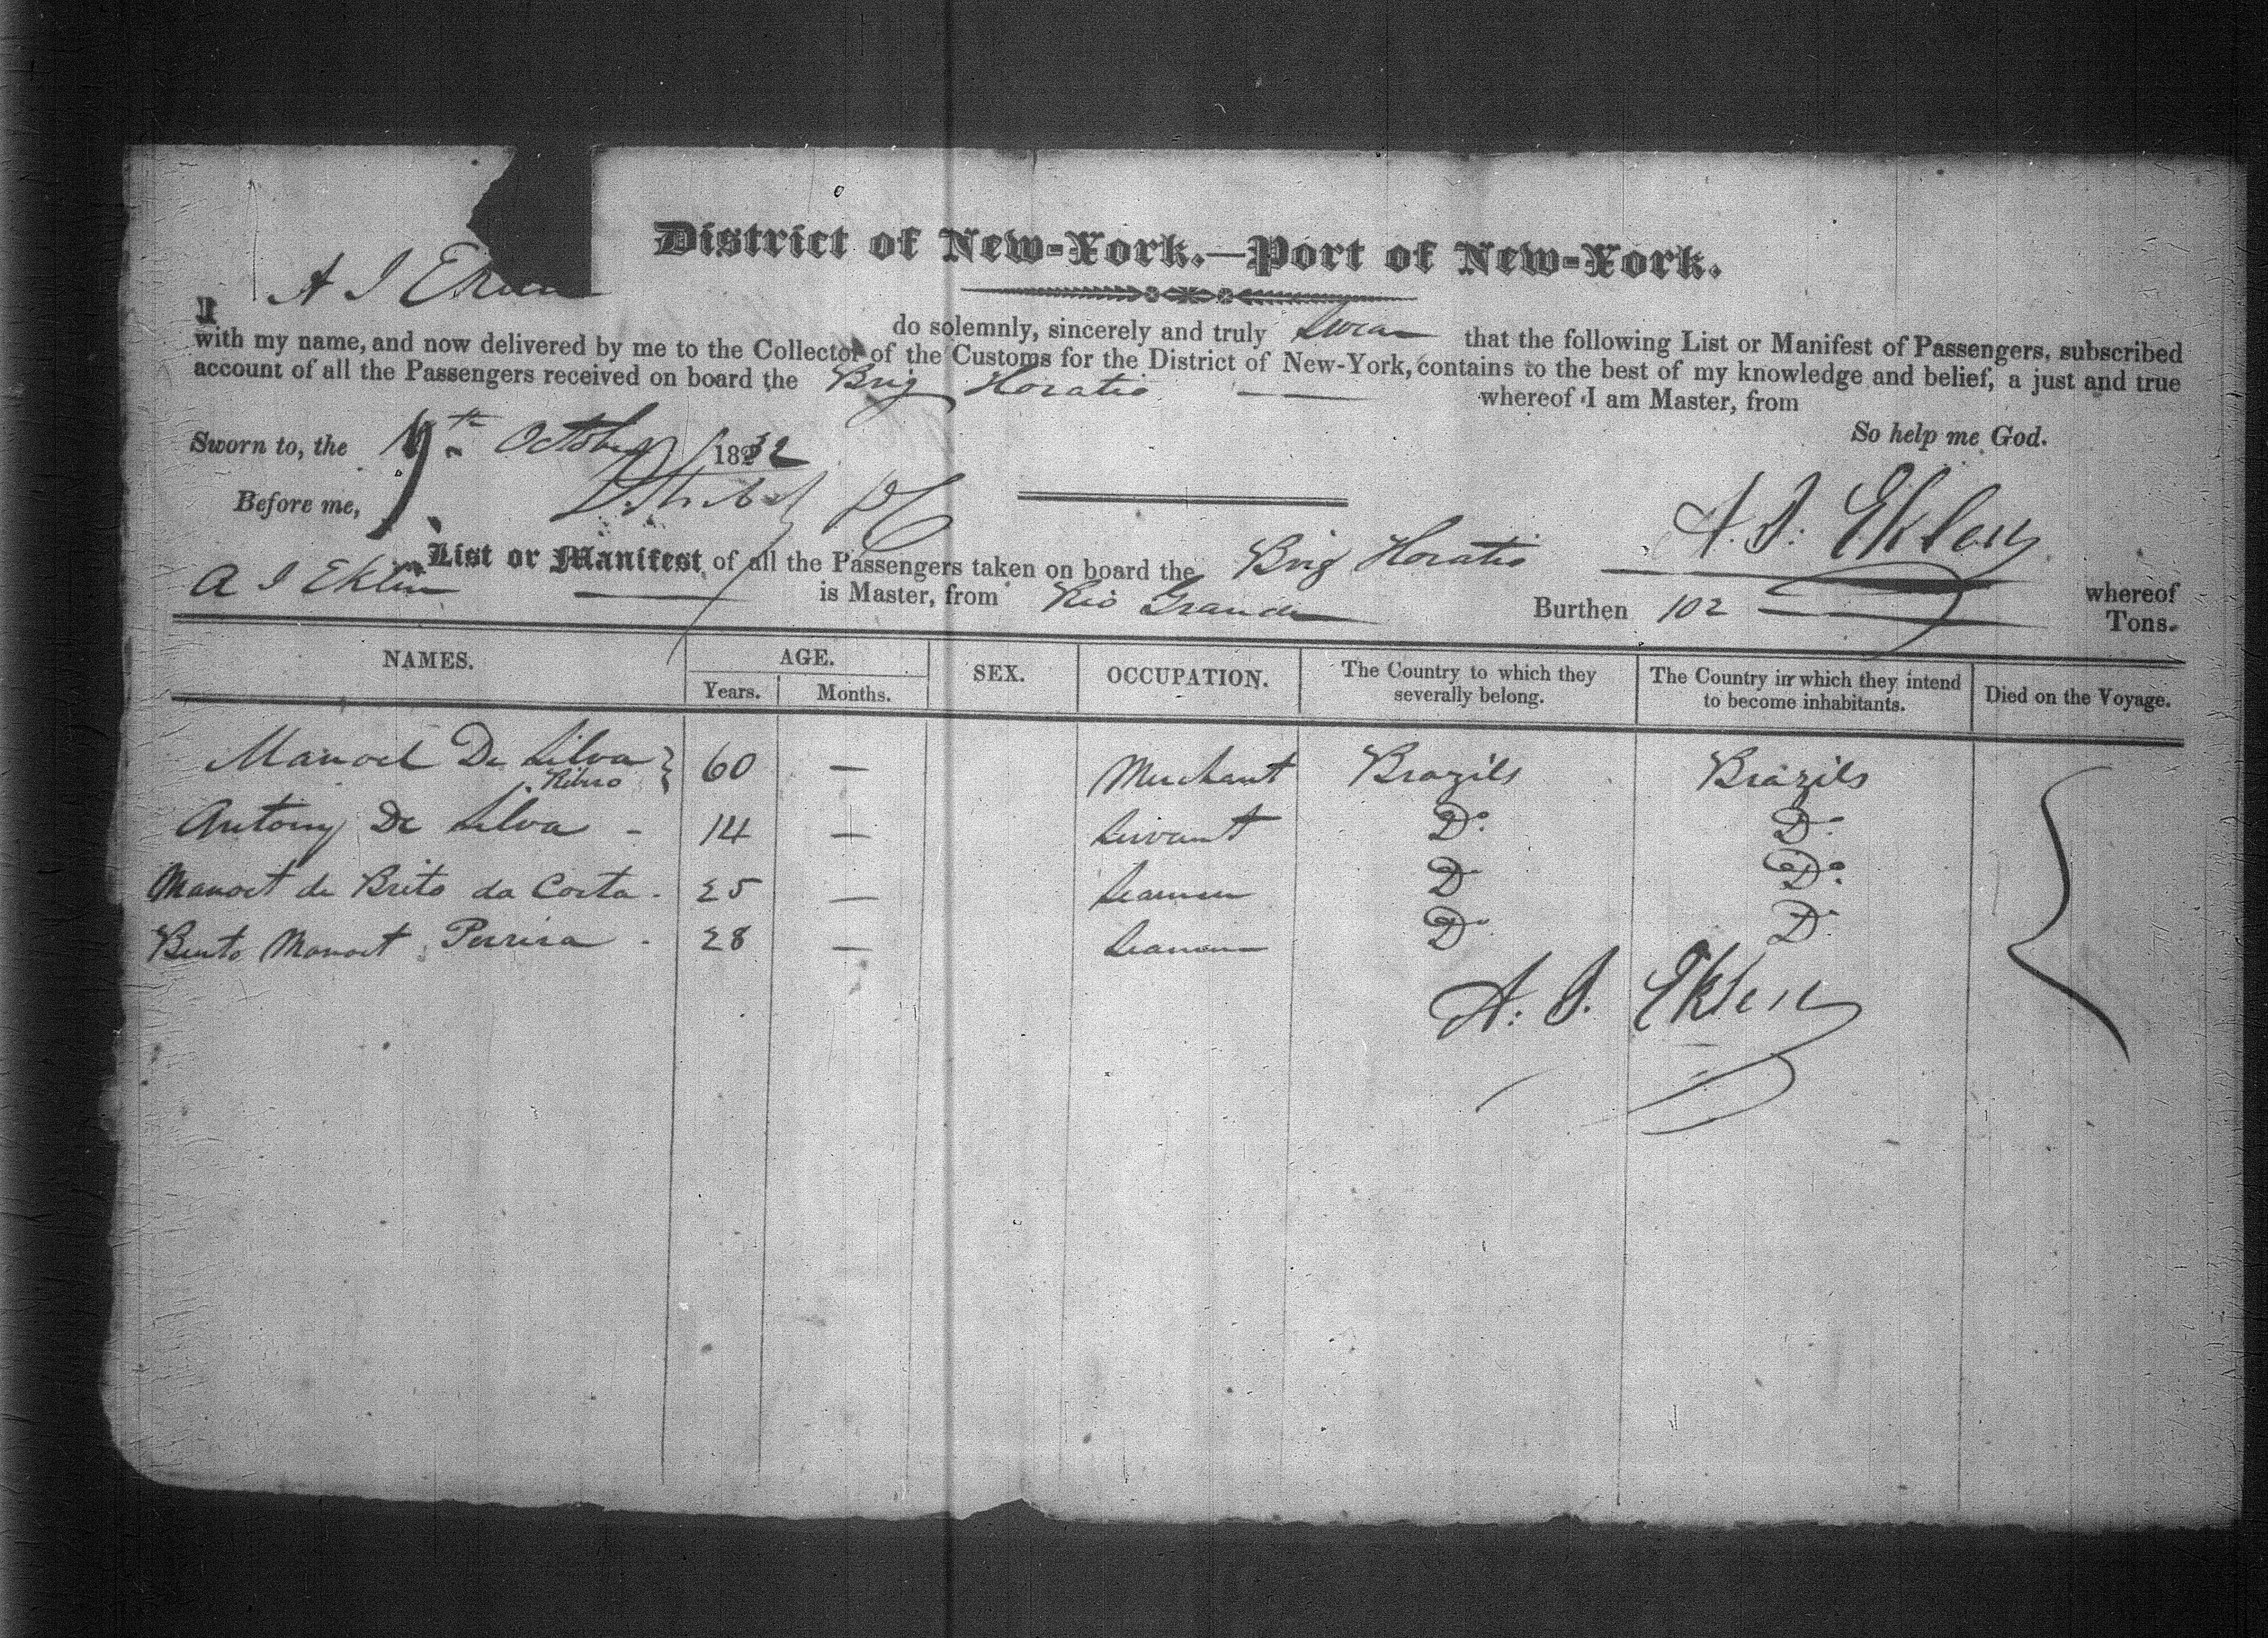 District of New-York.—Port of New-York.
I A I Eklen do solemnly, sincerely and truly Swear that the following List or Manifest of Passengers, subscribed
with my name, and now delivered by me to the Collector of the Customs for the District of New-York, contains to the best of my knowledge and belief, a just and true
account of all the Passengers received on board the Brig Horatio whereof I am Master, from
So help me God.
Sworn to, the th October 1832
Before me,
A. I. Eklen
List or Manifest of all the Passengers taken on board the Brig Horatio whereof
A I Eklen is Master, from Rio Grande Burthen 102 Tons.
NAMES. AGE. Years. Months. SEX. OCCUPATION. The Country to which they severally belong. The Country in which they intend to become inhabitants. Died on the Voyage.
Manoel De Silva 60 — Merchant Brazils Brazils
Ribero
Antony De Silva - 14 — Servant Do Do
Manoel de Brito da Costa - 25 — Seaman Do Do
Bento Manoel Perrira - 28 — Seaman Do Do
A. I. Eklen